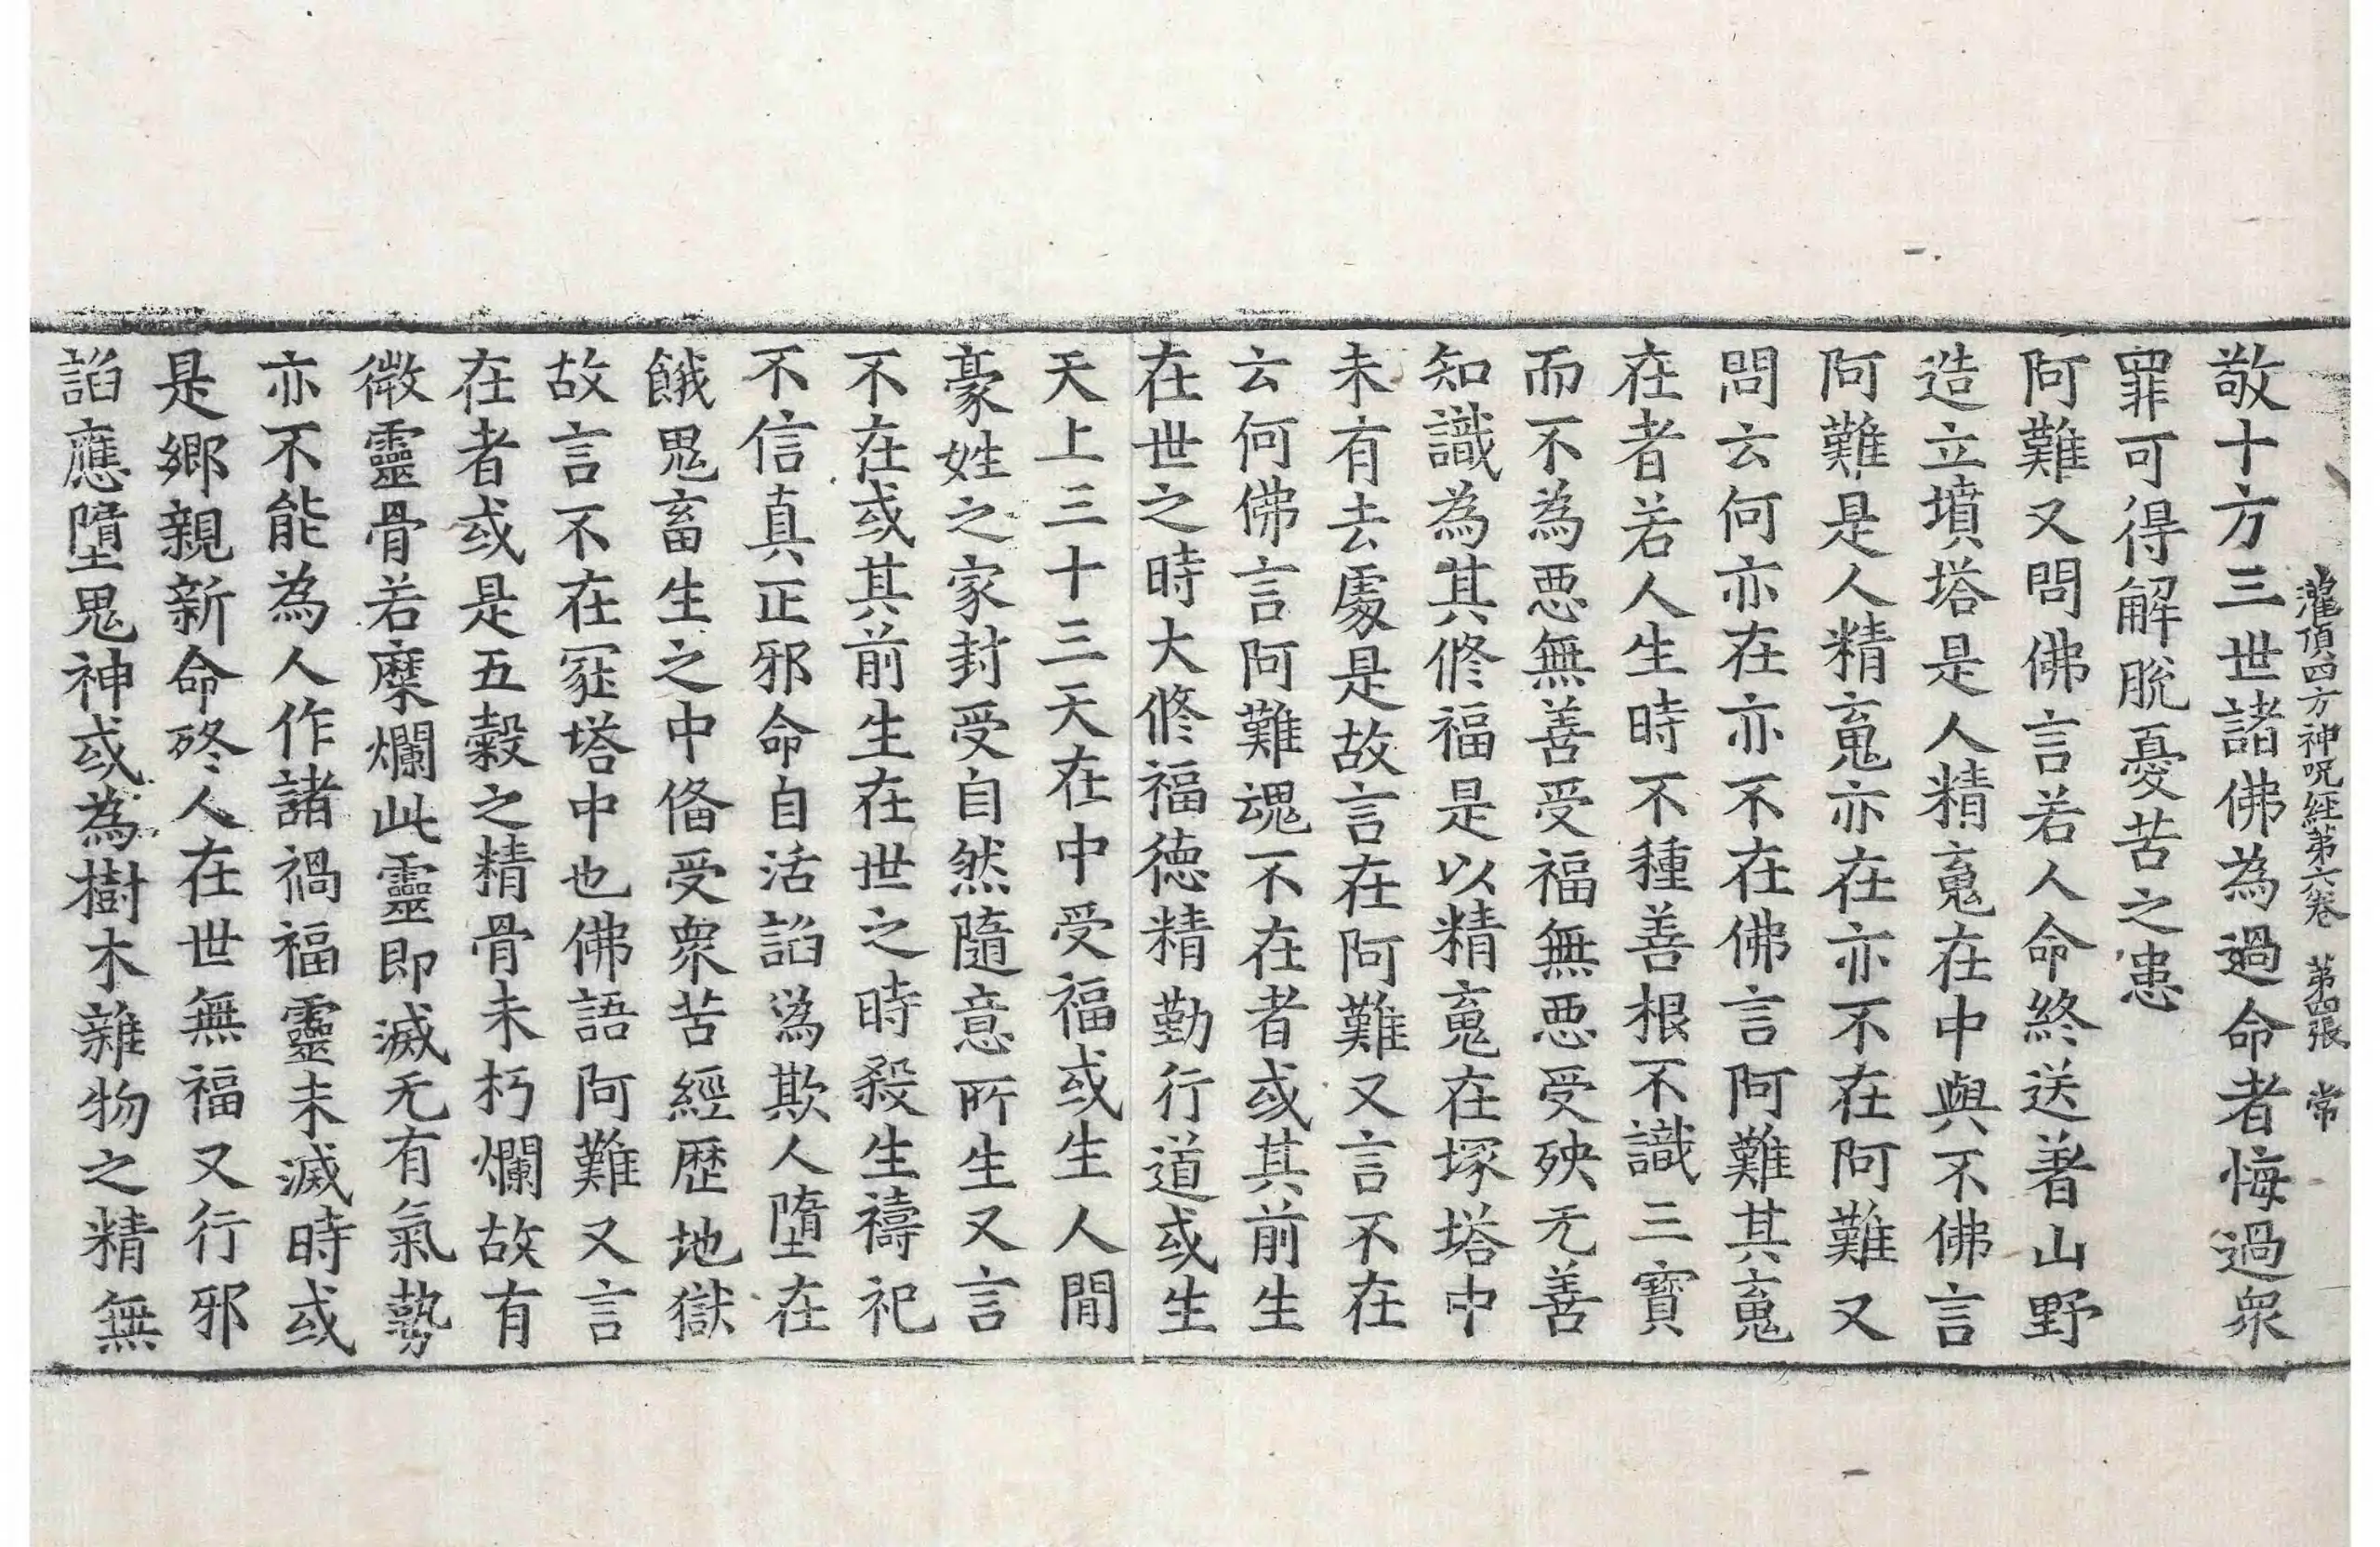 灌頂四方神呪經第六卷 第四張 常
敬十方三世諸佛為過命者悔過衆
罪可得解脫憂苦之患
阿難又問佛言若人命終送著山野
造立墳塔是人精䰟在中與不佛言
阿難是人精䰟亦在亦不在阿難又
問云何亦在亦不在佛言阿難其䰟
在者若人生時不種善根不識三寶
而不為惡無善受福無惡受殃无善
知識為其修福是以精䰟在塚塔中
未有去處是故言在阿難又言不在
云何佛言阿難魂不在者或其前生
在世之時大修福德精勤行道或生
天上三十三天在中受福或生人閒
豪姓之家封受自然隨意所生又言
不在或其前生在世之時殺生禱祀
不信真正邪命自活諂為欺人墮在
餓鬼畜生之中俻受衆苦經歷地獄
故言不在冢塔中也佛語阿難又言
在者或是五穀之精骨未朽爛故有
微靈骨若糜爛此靈即滅无有氣勢
亦不能為人作諸禍福靈未滅時或
是鄉親新命終人在世無福又行邪
諂應墮鬼神或為樹木雜物之精無